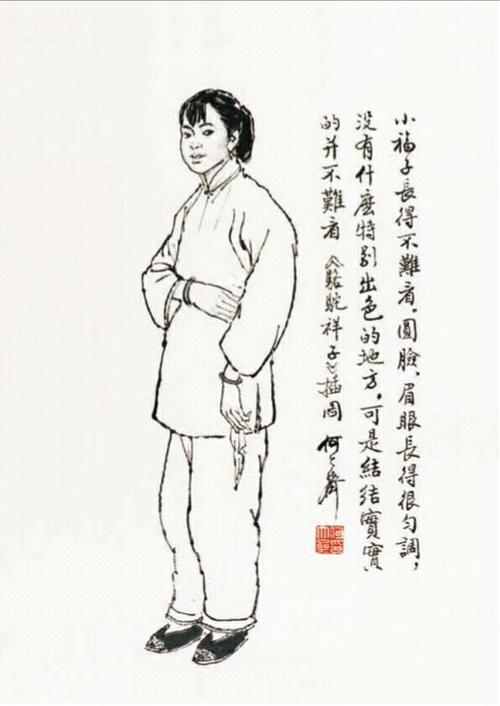 小福子長得不難看。圓臉、眉眼長得很勻調，
没有什麽特别出色的地方，可是結結實實
的并不難看 《駱駝祥子》插图 何大齊